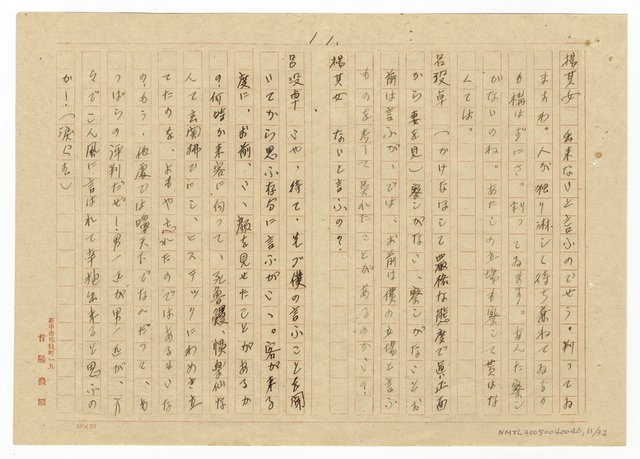 11.
楊其女　出来ないと言ふのでせう。判ってゐ
ますわ。人が独り淋しく待ち兼ねてゐるの
も構はずにさ。判ってゐます。あんた察し
がないのね。あたしの立場も察して貰はな
くては。
呂股卓　（かけなほして厳格な態度で真正面
から妻を見）察しがない、察しがないとお
前は言ふが、では、お前は僕の立場と言ふ
ものを考へて呉れたことがあるのかい？
楊其女　ないと言ふの？
呂股卓　いや、待て、先づ僕の言ふことを聞
いてから思ふ存分に言ふがいい。客が来る
度に、お前、いい顔を見せたことがあるか
の何時か来客に向って、死
んて玄関払ひにし、ヒステリックにわめき立
てたのを、よもや忘れたのではあるまいな
のもう、他處では嚊天下でなんがって、も
っぱらの評判だぜ！男一匹が男一匹が、方
々でこん風に言はれて辛抱出来ると思ふの
か！（涙ぐむ）
臺中市梅枝町一九
首陽農園
10×20
NMTL20050040046, 11/32